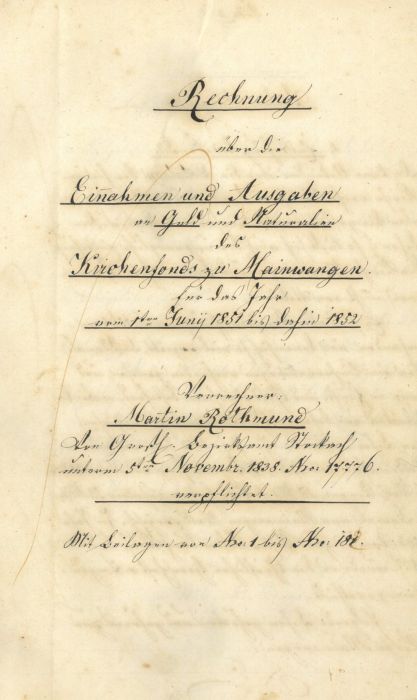 Rechnung
über die
Einnahmen und Ausgaben
an Geld und Naturalien
des
Kirchenfonds zu Mainwangen.
für das Jahr
vom 1ten Junÿ 1851 bis dahin 1852
Verrechner:
Martin Rothmund
Von Großh. Bezirksamt Stockach
unterm 5ten Novembr. 1838. Nro: 17776.
verpflichtet.
Mit Beilagen von Nro: 1 bis Nro: